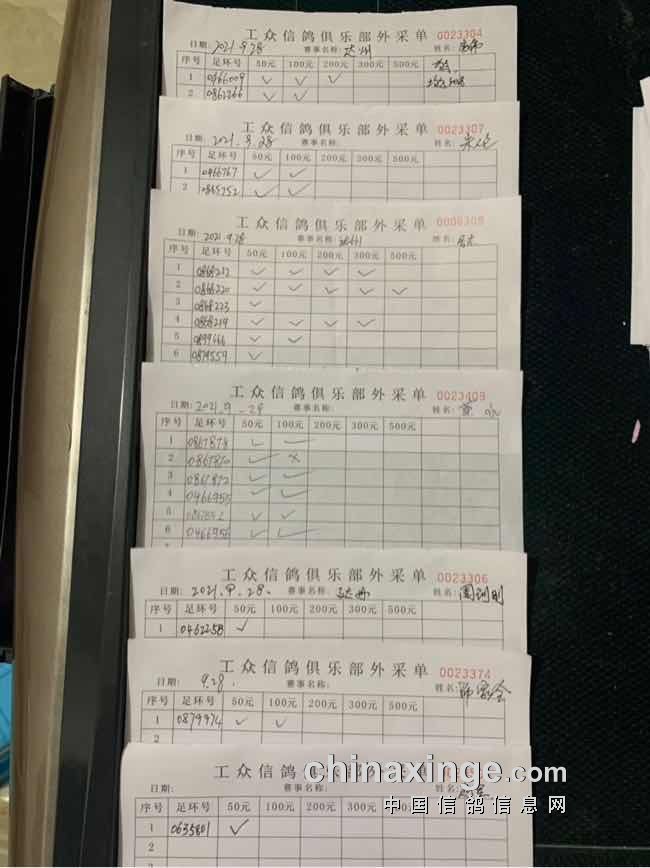 工众信鸽俱乐部外采单 0023304
日期: 2021.9.28 赛事名称: 达州 姓名:
序号 足环号 50元 100元 200元 300元 500元
1 0466009 ✓ ✓ ✓
2 0862266 ✓ ✓
工众信鸽俱乐部外采单 0023307
日期: 2021.9.28 赛事名称: 姓名:
序号 足环号 50元 100元 200元 300元 500元
1 0466767 ✓ ✓
2 0865252 ✓ ✓
工众信鸽俱乐部外采单
日期: 2021.9.28 赛事名称: 达州 姓名:
序号 足环号 50元 100元 200元 300元 500元
1 0868212 ✓ ✓ ✓ ✓
2 0868220 ✓ ✓ ✓ ✓ ✓
3 0868223 ✓
4 0868219 ✓ ✓ ✓ ✓
5 0899666 ✓ ✓
6 0879559 ✓
工众信鸽俱乐部外采单 0023409
日期: 2021.9.28 赛事名称: 姓名:
序号 足环号 50元 100元 200元 300元 500元
1 0867878 ✓ ✓
2 ✓ ×
3 0867872 ✓ ✓
4 0466955 ✓ ✓
5 ✓ ✓
6 0466956 ✓ ✓
工众信鸽俱乐部外采单 0023306
日期: 2021.9.28. 赛事名称: 达州 姓名:
序号 足环号 50元 100元 200元 300元 500元
1 0462258 ✓
工众信鸽俱乐部外采单 0023374
日期: 9.28. 赛事名称: 姓名:
序号 足环号 50元 100元 200元 300元 500元
1 0879974 ✓ ✓
2
工众信鸽俱乐部外采单
日期: 赛事名称: 姓名:
序号 足环号 50元 100元 200元 300元 500元
1 0635801 ✓
2
3
chinaxinge.com
中国信鸽信息网